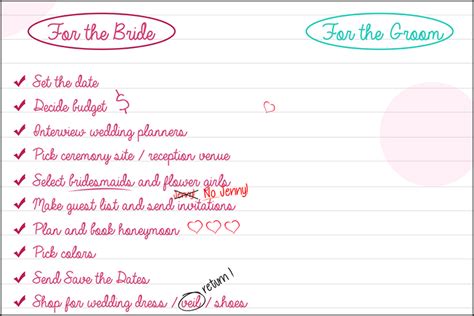 For the Bride
For the Groom
Set the date
Decide budget $
Interview wedding planners
Pick ceremony site / reception venue
Select bridesmaids and flower girls
Jenny No Jenny!
Make guest list and send invitations
Plan and book honeymoon
Pick colors
Send Save the Dates
return!
Shop for wedding dress / veil / shoes